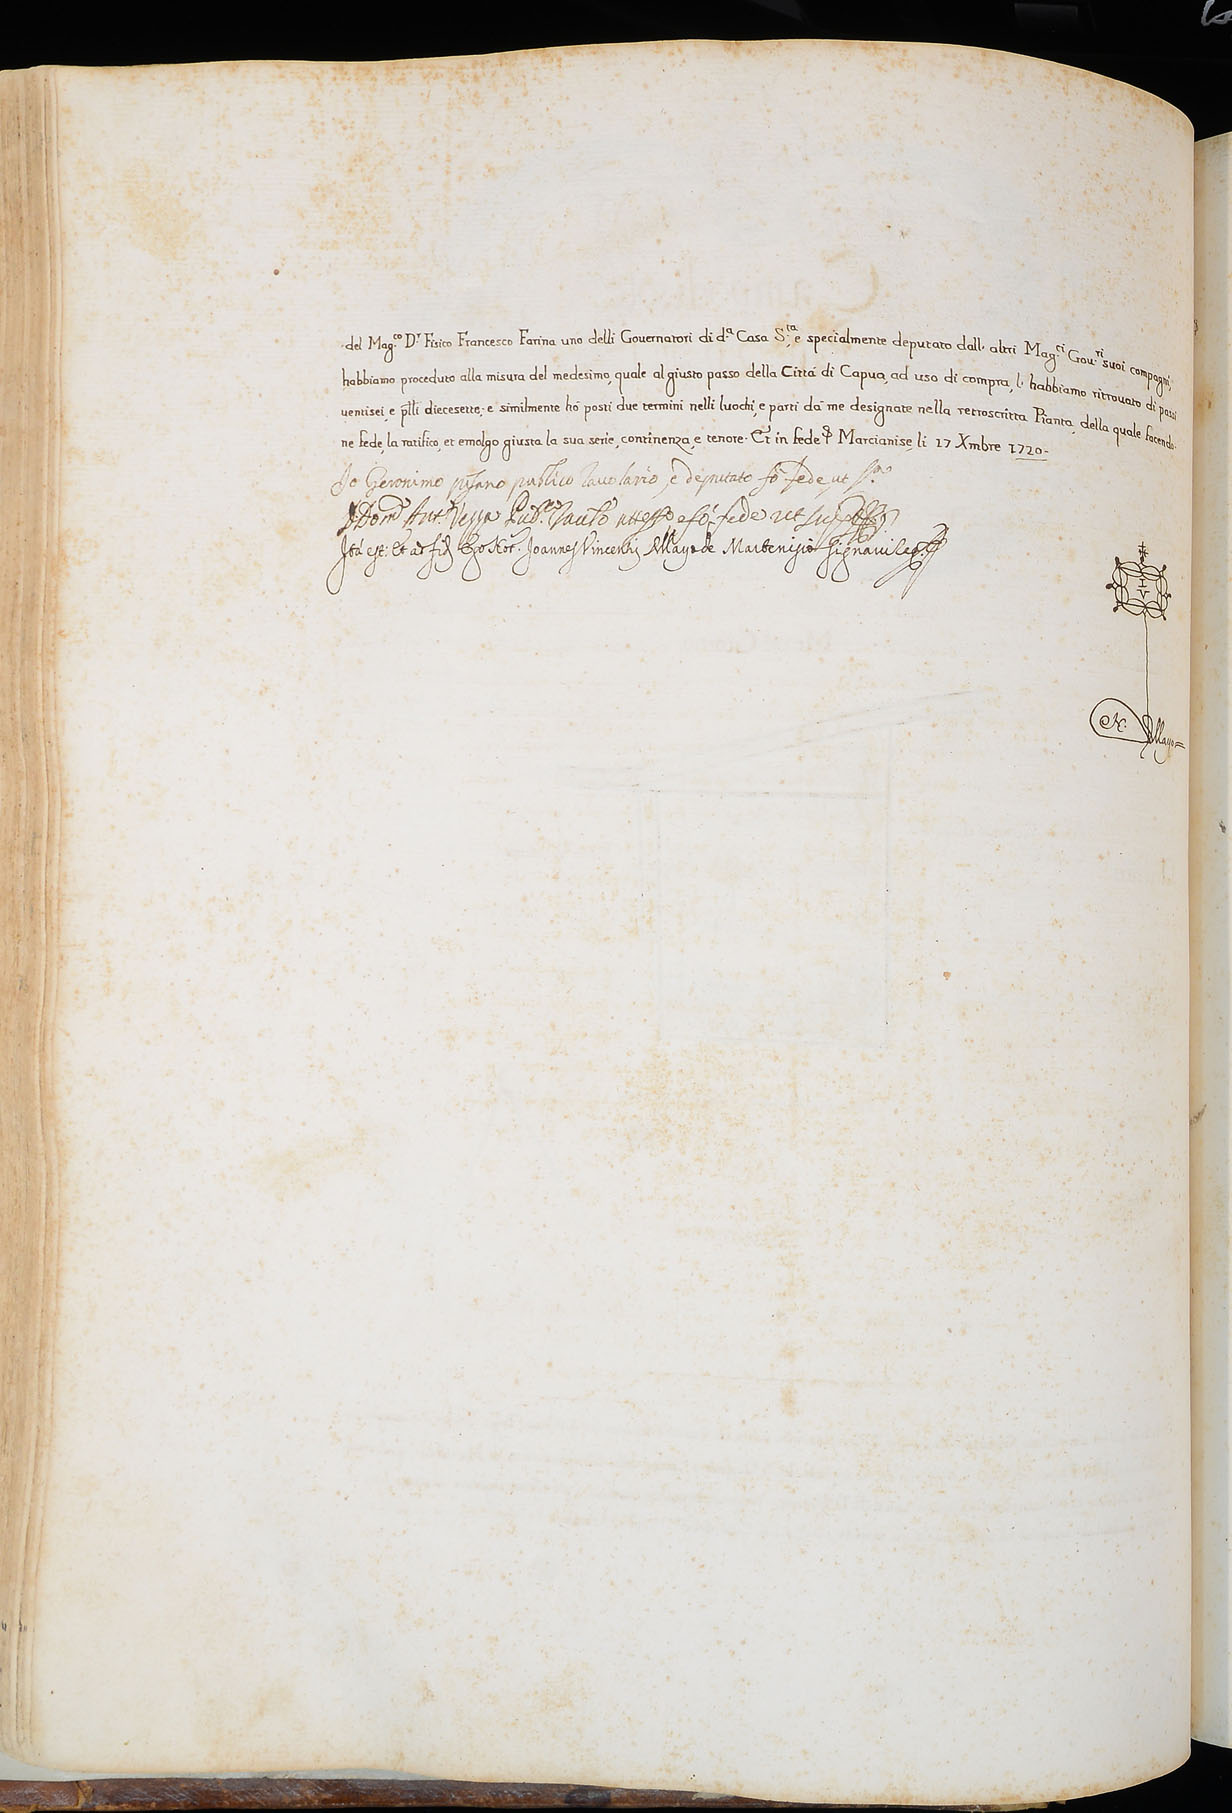 del Mag.co D.r Fisico Francesco Farina uno delli Gouernatori di d.a Casa S.ta, e specialmente deputato dall' altri Mag.ci Gou.ri suoi compagni,
habbiamo proceduto alla misura del medesimo, quale al giusto passo della Città di Capua, ad uso di compra, l' habbiamo ritrouato di passi
uentisei, e p̄lli diecesette; e similmente hò posti due termini nelli luochi, e parti dà me designate nella retroscritta Pianta, della quale facendo-
ne fede, la ratifico, et emolgo giusta la sua serie, continenza, e tenore. Et in fede Marcianise, li 17 Xmbre 1720-
Io Geronimo pisano publico tauolario, e deputato fò fede ut s.a
Dom.o Ant.o Vezza Pub.co Tau.rio attesto e fò fede ut sup.a
Ita est: Et ad fid. Ego Not. Joannes Vincentius Mayo de Martenisio signaui
I V
N. Mayo=